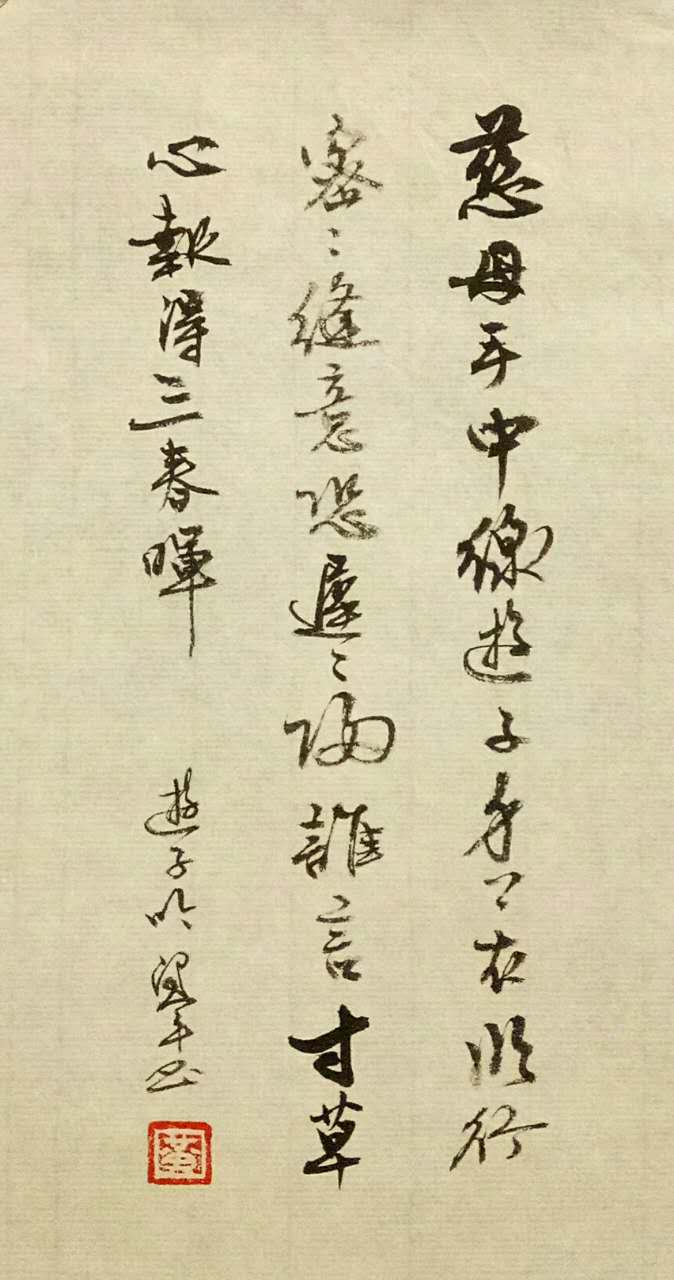 慈母手中線遊子身上衣臨行
密々縫意恐遲々歸誰言寸草
心報得三春暉
遊子吟